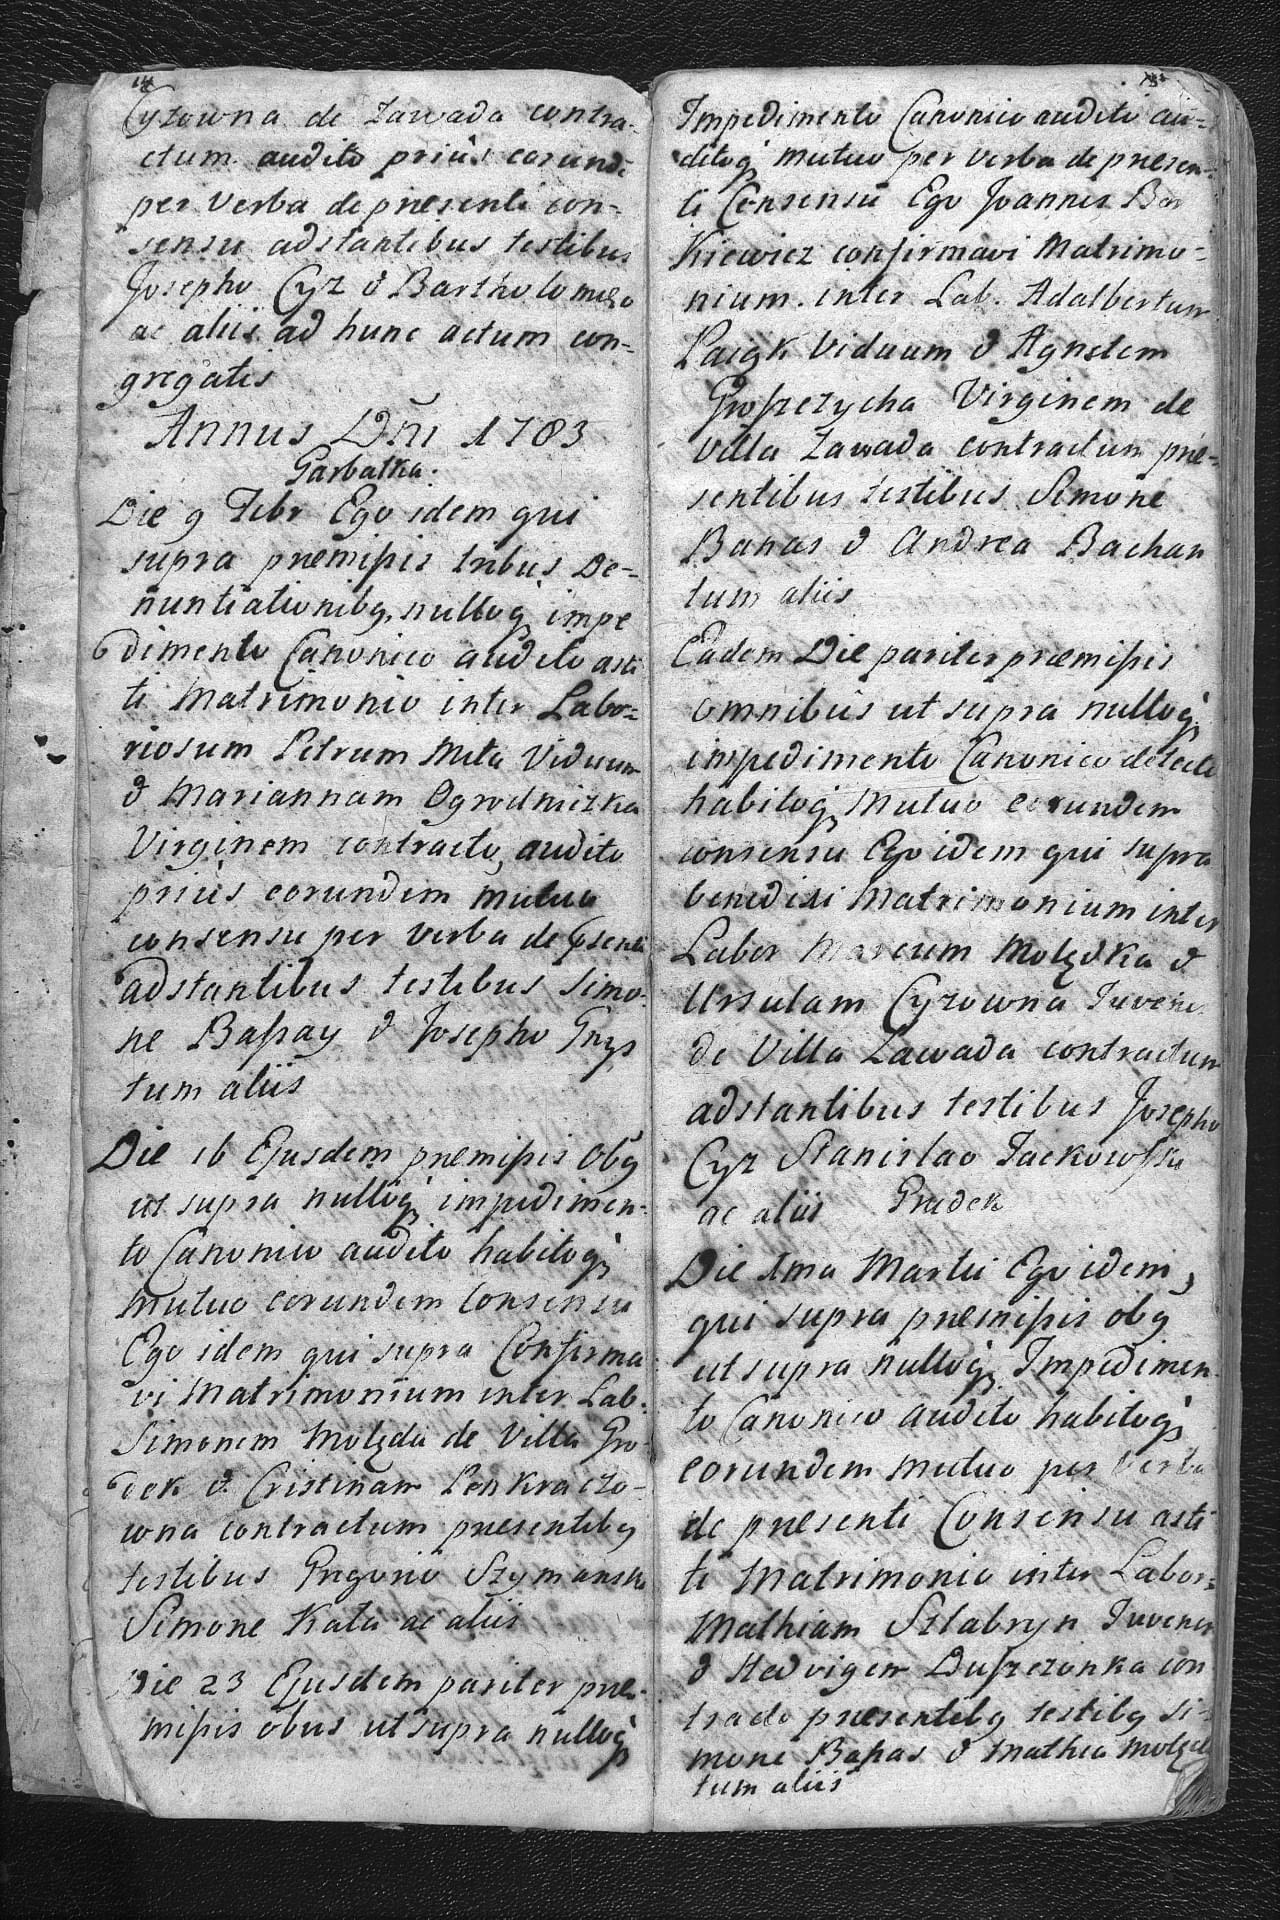 14
Cyzowna de Zawada contra-
ctum audito prius eorund:
per Verba de præsenti con-
sensu adstantibus testibus
Josepho Cyz & Bartholomeo
ac aliis ad hunc actum con-
gregatis
Annus Dñi 1783
Garbatka.
Die 9 Febr Ego idem qui
supra præmissis tribus De-
nuntiationibq, nulloq impe
dimento Canonico audito asti
ti Matrimonio inter Labo-
riosum Petrum Meta Viduum
& Mariannam Ogrodniczka
Virginem contracto, audito
prius eorundem mutuo
consensu per verba de pſenti
adstantibus testibus Simo-
ne Bassay & Josepho Grys
tum aliis
Die 16 Ejusdem præmissis obq
ut supra nulloq impedimen-
to Canonico audito habitoq
mutuo eorundem Consensu
Ego idem qui supra Confirma
vi Matrimonium inter Lab.
Simonem Molęda de Villa Gro-
dek & Cristinam Penkraczo-
wna contractum præsentibq
testibus Gregorio Szymansk
Simone Kata ac aliis
Die 23 Ejusdem pariter præ-
missis obus ut supra nulloq
Impedimento Canonico audito au-
ditoq mutuo per verba de præsen-
ti Consensu Ego Joannes Bar
Kiewicz confirmavi Matrimo-
nium inter Lab. Adalbertum
Paigk Viduum & Agnetem
Groszczycha Virginem de
Villa Zawada contractum præ-
sentibus testibus Simone
Banas & Andrea Bachan
tum aliis
Eadem Die pariter præmissis
omnibus ut supra nulloq
impedimento Canonico detecto
habitoq Mutuo eorundem
consensu Ego idem qui supra
benedixi Matrimonium inter
Labor Marcum Molędka &
Ursulam Cyzowna Juvene
de Villa Zawada contractum
adstantibus testibus Josepho
Cyz Stanislao Jackowsku
ac aliis Gradek
Die 1ma Martii Ego idem,
qui supra præmissis obq
ut supra nulloq Impedimen
to Canonico audito habitoq
eorundem mutuo per Verba
de præsenti Consensu asti
ti Matrimonio inter Labor:
Mathiam Szlabryn Juvenem
& Hedvigem Duszczonka con
tracto præsentibq testibq Si-
mone Banas & Mathia Molęda
tum aliis